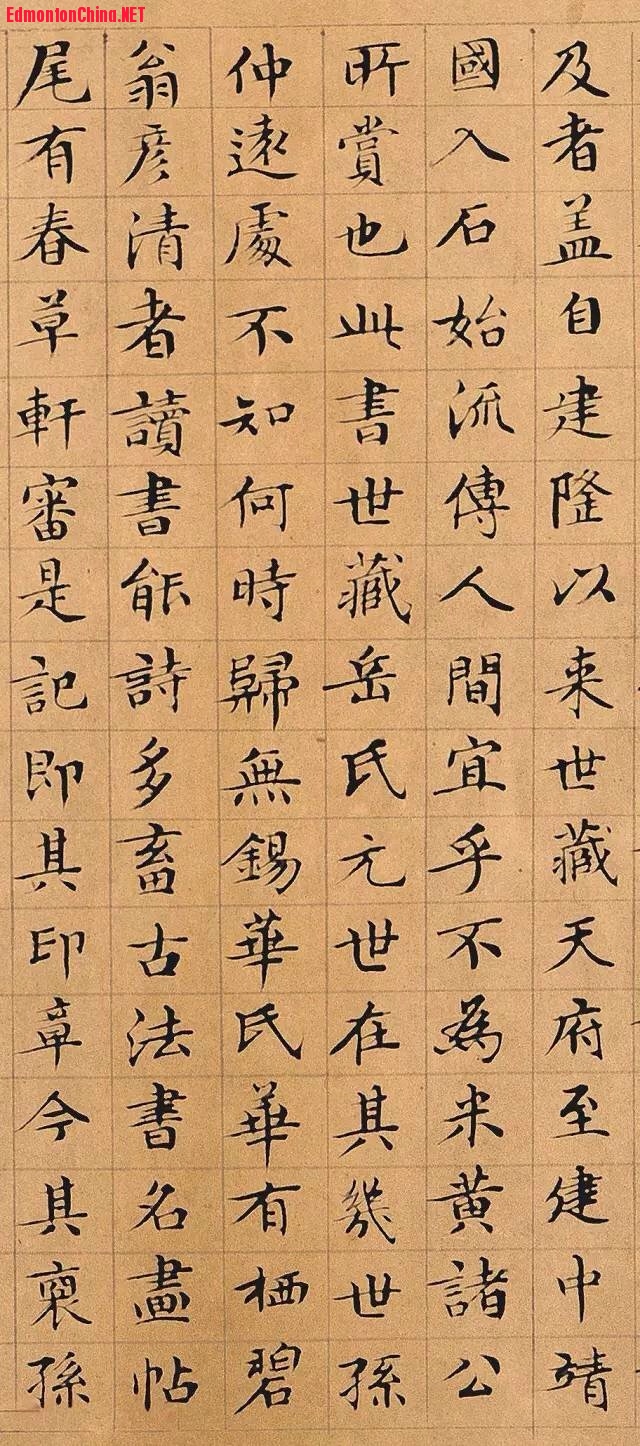 EdmontonChina.NET
及者盖自建隆以来世藏天府至建中靖
國入石始流傳人間宜乎不為米黃諸公
所賞也此書世藏岳氏元世在其幾世孫
仲遠處不知何時歸無錫華氏華有栖碧
翁彦清者讀書能詩多畜古法書名畫帖
尾有春草軒審是記即其印章今其裔孫